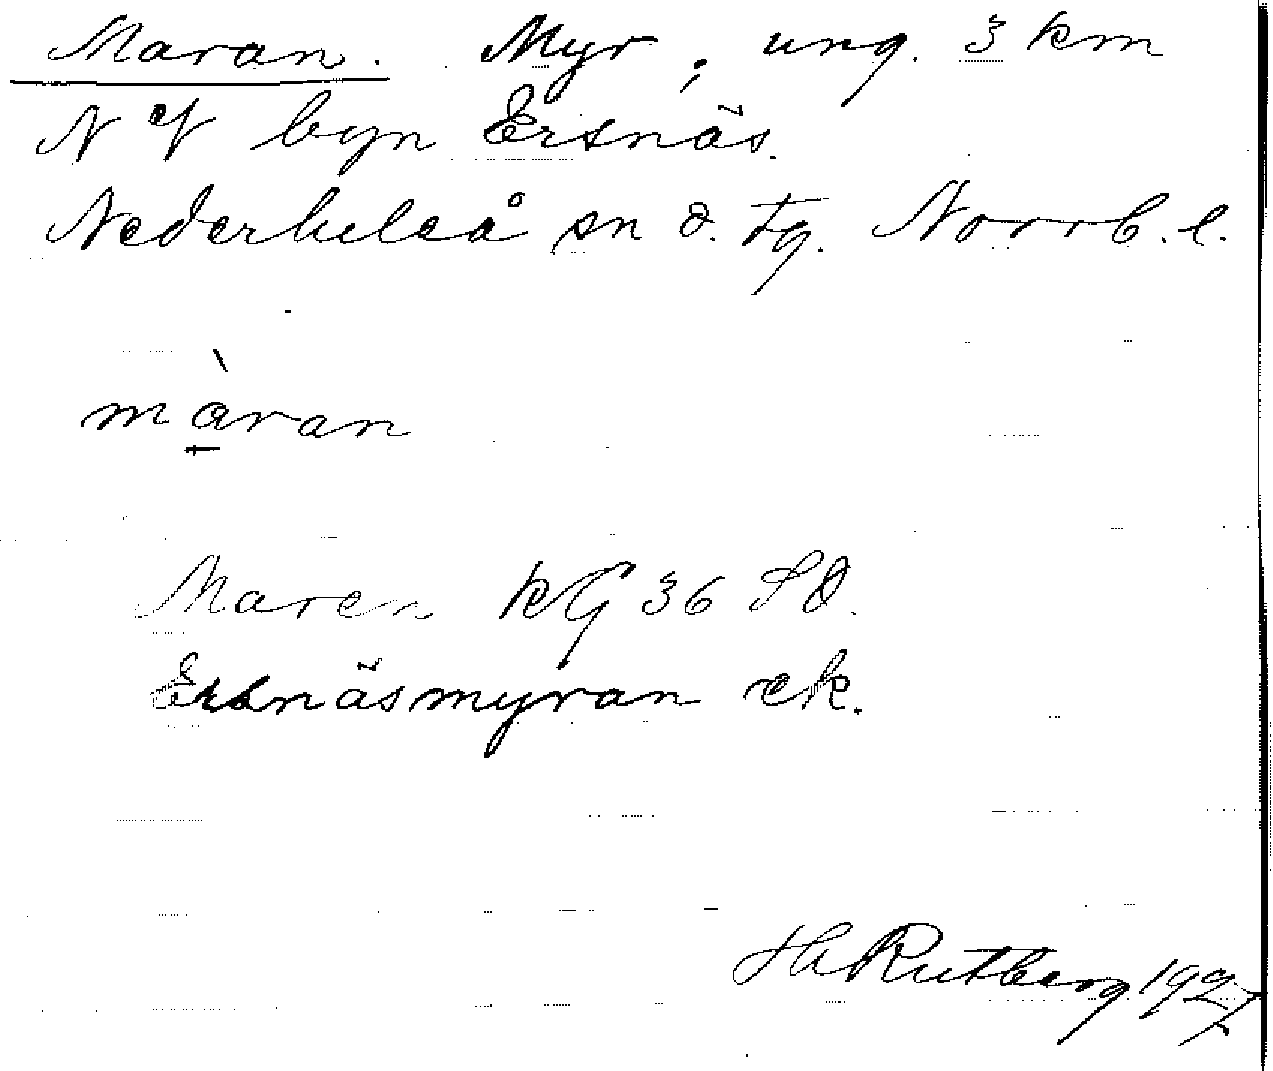 Maran. Myr, ung. 3 km
N of byn Ersnäs.
Nederluleå sn o. tg. Norrb. l.
màran
Maren KG 36 SO.
Ersnäsmyran ek.
H Rutberg 1927